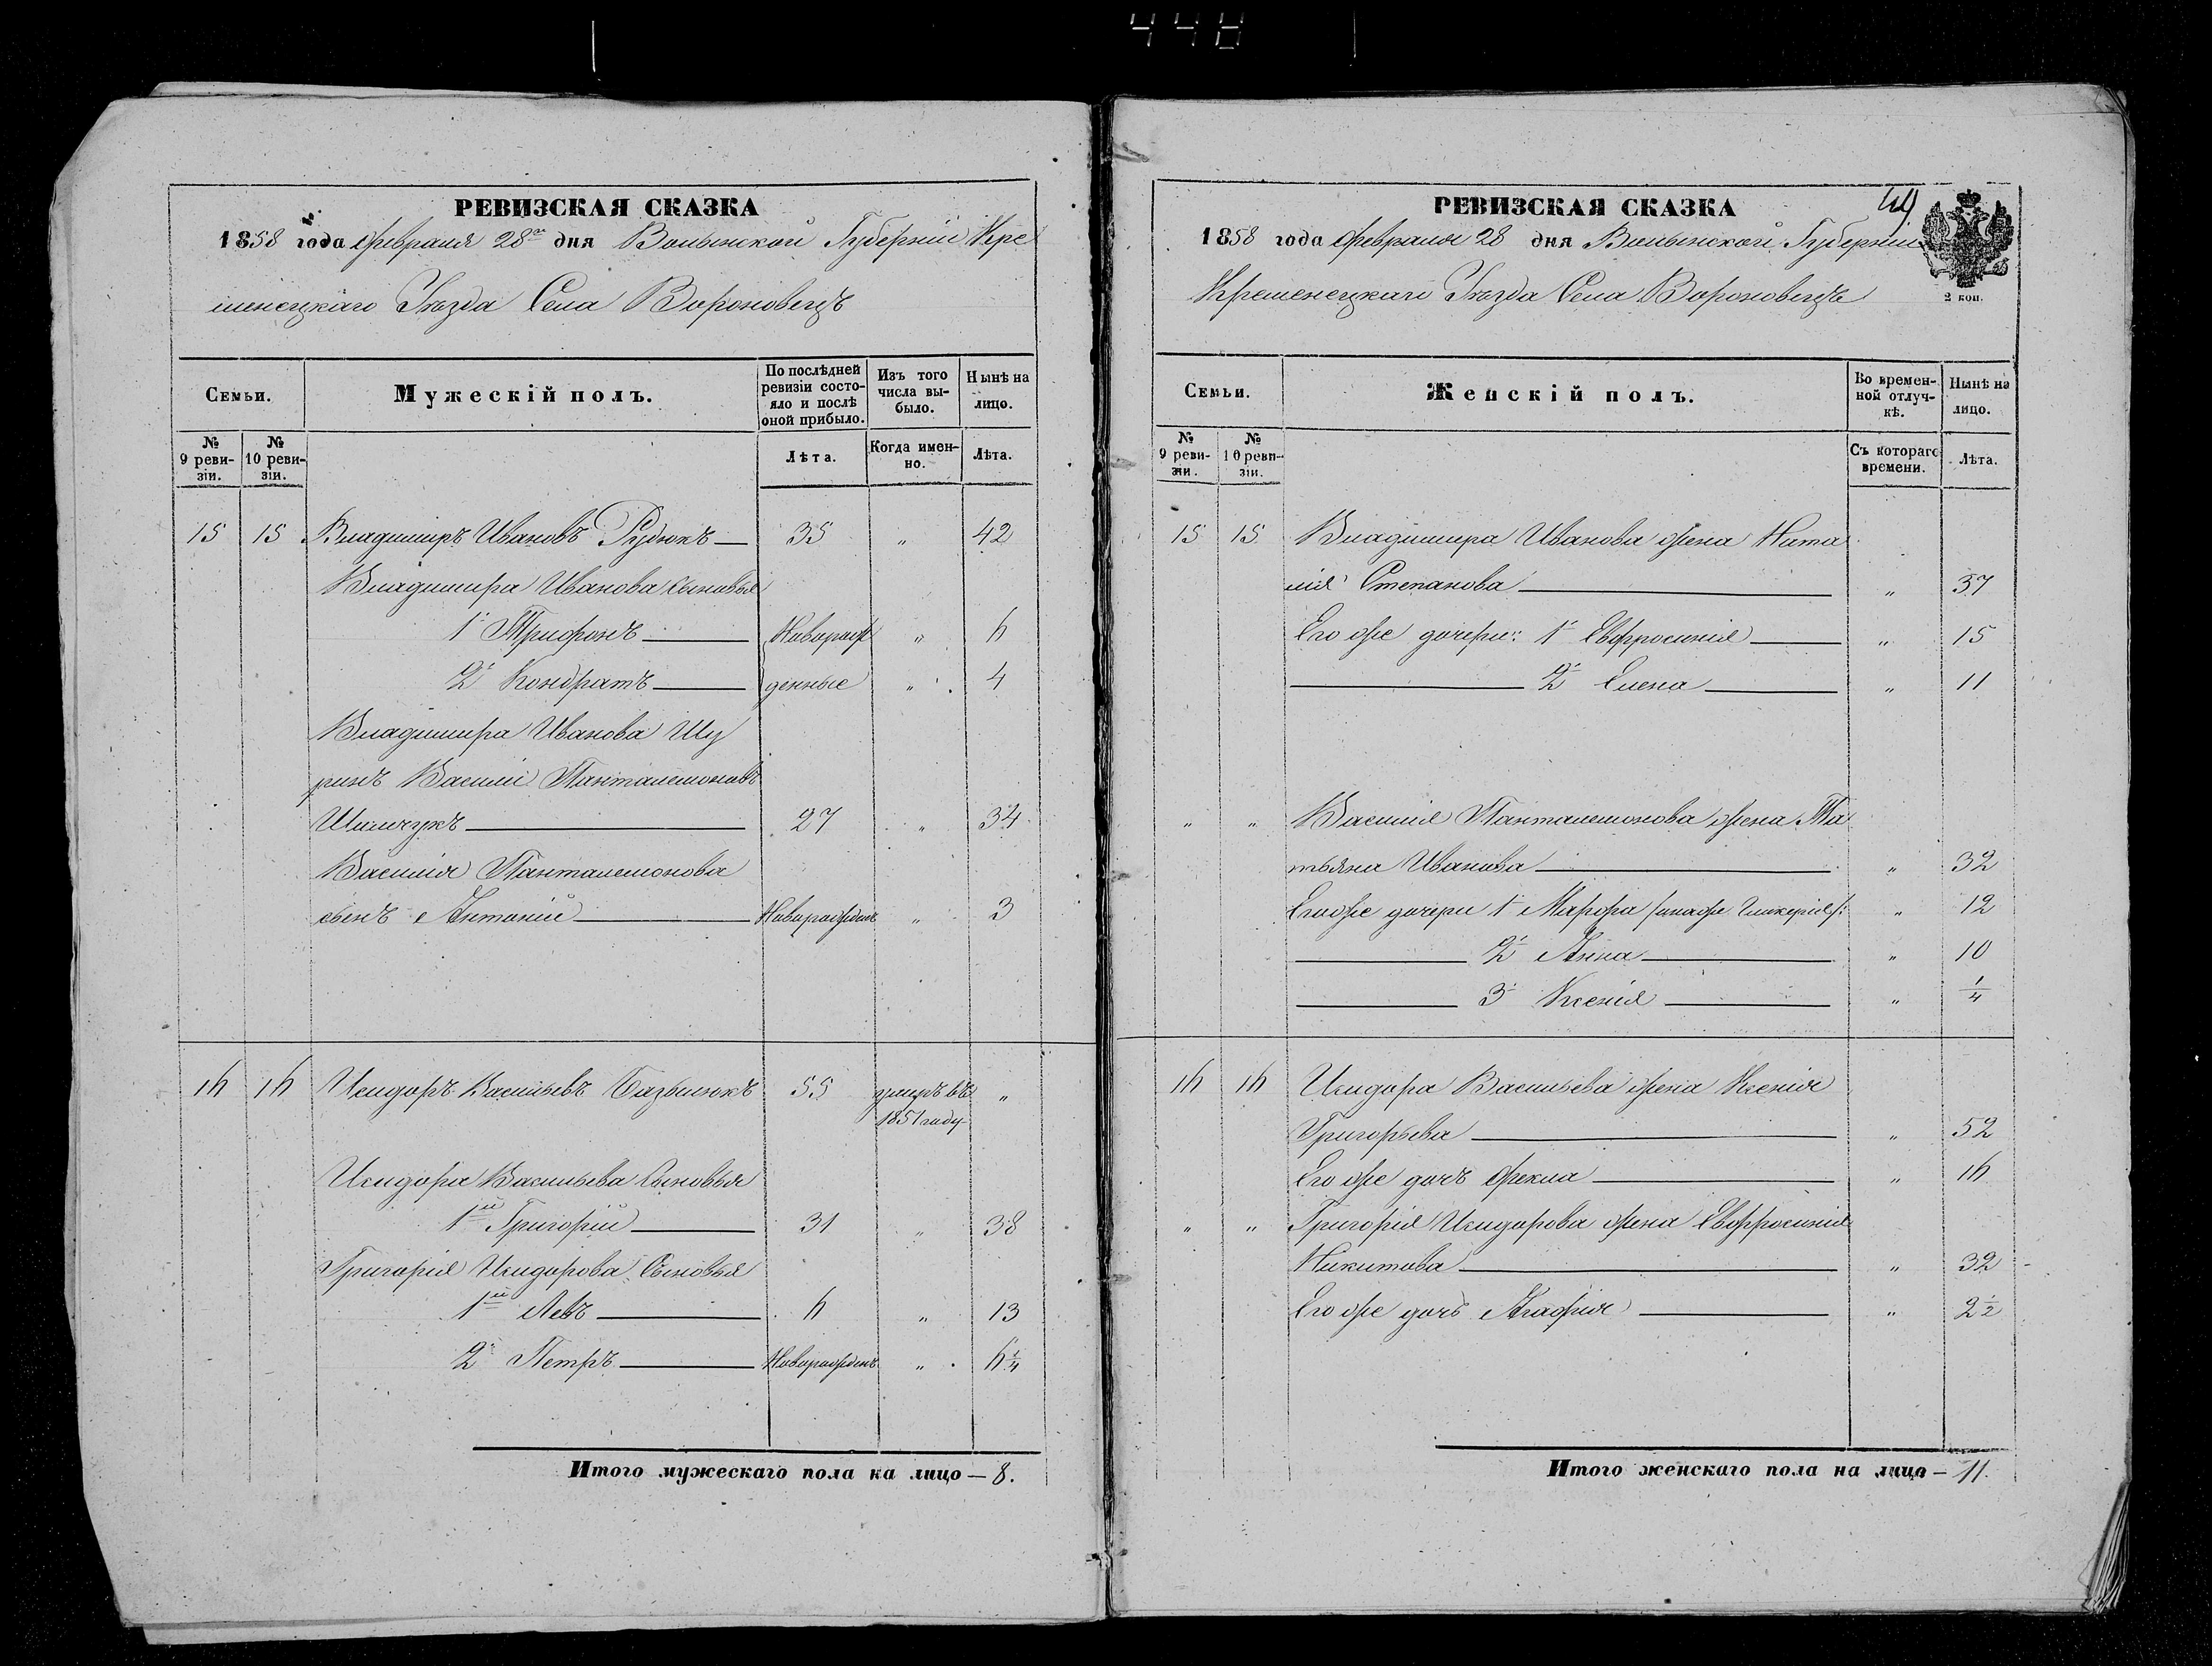 448
РЕВИЗСКАЯ СКАЗКА
1858 года Февраля 28го дня Волынской Губерніи Кре
менецкаго Уѣзда Села Вороновецъ
Семьи.
Мужескій полъ.
По послѣдней ревизіи состояло и послѣ оной прибыло.
Изъ того числа выбыло.
Нынѣ на лицо.
№ 9 ревизіи.
№ 10 ревизіи.
Лѣта.
Когда именно.
Лѣта.
15 15 Владимиръ Ивановъ Рудюкъ 35 „ 42
Владимира Иванова сыновья
1й Трифонъ Новорож „ 6
2й Кондратъ денные „ 4
Владимира Иванова Шу
ринъ Василій Панталемоновъ
Шимчукъ 27 „ 34
Василія Панталемонова
сынъ Антоній Новорожденъ „ 3
16 16 Исидоръ Васильевъ 55 умеръ въ „
1851 году
Исидора Васильева Сыновья
1й Григорій 31 „ 38
Григорія Исидорова Сыновья
1й Левъ 6 „ 13
2й Петръ Новорожденъ „ 6 1/4
Итого мужескаго пола на лицо — 8.
РЕВИЗСКАЯ СКАЗКА
1858 года Февраля 28 дня Волынской Губерніи
Кременецкаго Уѣзда Села Вороновецъ
2 коп.
Семьи.
Женскій полъ.
Во временной отлучкѣ.
Нынѣ на лицо.
№ 9 ревизіи.
№ 10 ревизіи.
Съ котораго времени.
Лѣта.
15 15 Владимира Иванова жена Ната
лія Степанова „ 37
Его же дочери: 1я Евфросинія „ 15
2я Елена „ 11
„ „ Василія Панталемонова жена Та
тьяна Иванова „ 32
Его же дочери 1я Марфа /она же Гликерія/: „ 12
2я Анна „ 10
3я Ксенія „ 1/4
16 16 Исидора Васильева жена Ксенія
Григорьева „ 52
Его же дочь Фекла „ 16
„ „ Григорія Исидорова жена Евфросинія
Никитова „ 32
Его же дочь Агафія „ 2 1/2
Итого женскаго пола на лицо — 11.